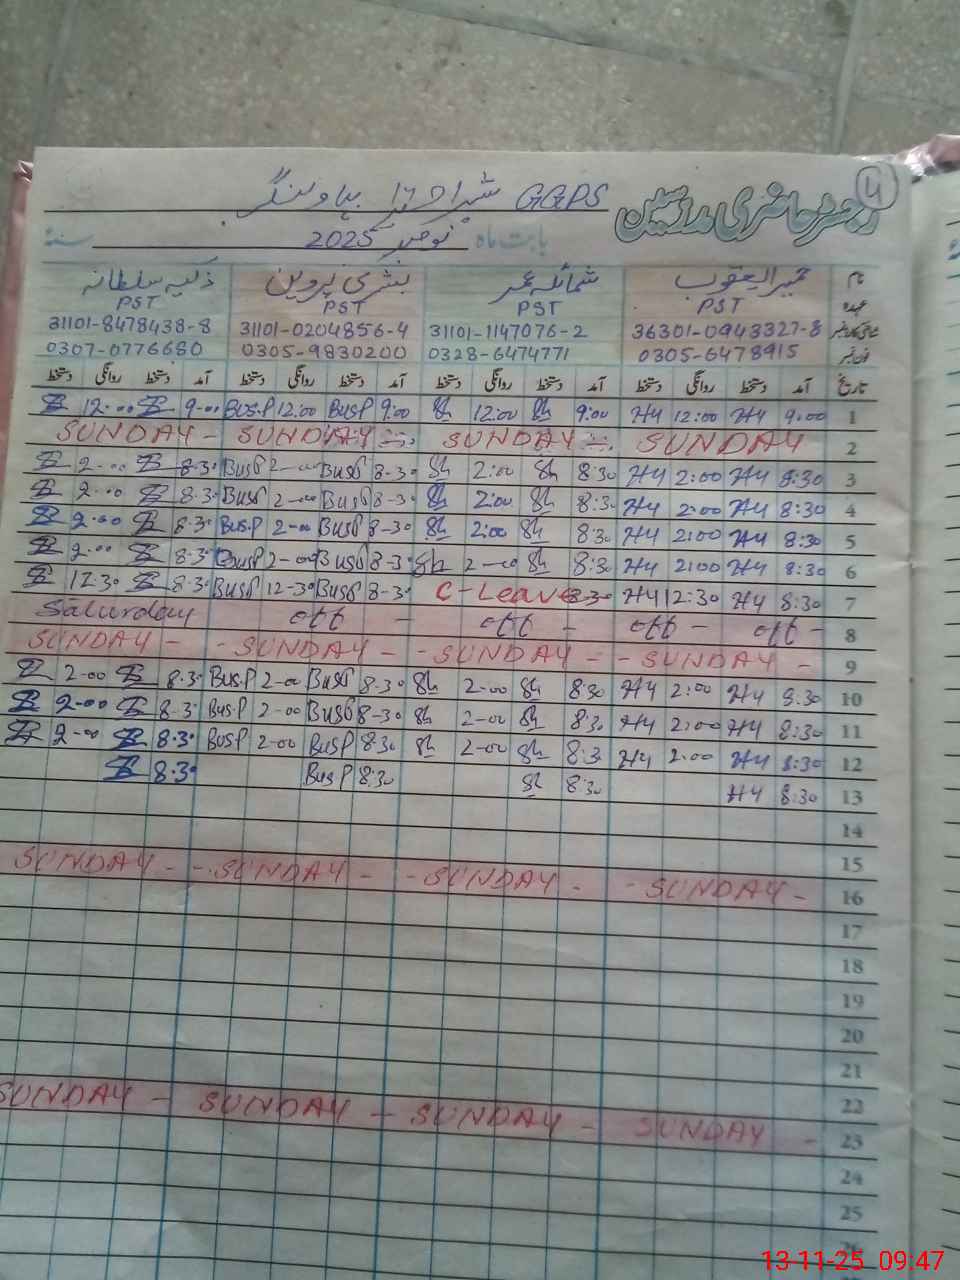 4
رجسٹر حاضری مدرسین GGPS بہاولنگر
بابت ماہ نومبر 2025 سنہ
نام شمائلہ عمر بشریٰ پروین ذکیہ سلطانہ
عہدہ PST PST PST PST
36301-0943327-8 31101-1147076-2 31101-0204856-4 31101-8478438-8
فون نمبر 0305-6478915 0328-6474771 0305-9830200 0307-0776680
تاریخ آمد دستخط روانگی دستخط آمد دستخط روانگی دستخط آمد دستخط روانگی دستخط آمد دستخط روانگی دستخط
1 9:00 H4 12:00 H4 9:00 Sh 12:00 Sh 9:00 Bus.P 12:00 Bus.P 9-00 12-00
2 SUNDAY SUNDAY SUNDAY - SUNDAY -
3 8:30 H4 2:00 H4 8:30 Sh 2:00 Sh 8-30 Bus 2-00 Bus 8-30 2-00
4 8:30 H4 2:00 H4 8:30 Sh 2:00 Sh 8-30 Bus 2-00 Bus 8-30 2-00
5 8:30 H4 2:00 H4 8:30 Sh 2:00 Sh 8-30 Bus 2-00 Bus.P 8-30 2-00
6 8:30 H4 2:00 H4 8:30 Sh 2-00 Sh 8-30 Bus 2-00 Bus.P 8-30 2-00
7 8:30 H4 12:30 H4 C-Leave 8-30 Bus 12-30 Bus 8-30 12-30
8 off - off - off - off - Saturday
9 SUNDAY - - SUNDAY - - SUNDAY - - SUNDAY -
10 8:30 H4 2:00 H4 8:30 Sh 2-00 Sh 8-30 Bus 2-00 Bus.P 8-30 2-00
11 8:30 H4 2:00 H4 8:30 Sh 2-00 Sh 8-30 Bus 2-00 Bus.P 8-30 2-00
12 8:30 H4 2:00 H4 8:30 Sh 2-00 Sh 8:30 Bus.P 2-00 Bus.P 8-30 2-00
13 8:30 H4 8:30 Sh 8:30 Bus.P 8-30
14
15
16 SUNDAY - - SUNDAY - - SUNDAY - - SUNDAY -
17
18
19
20
21
22
23 SUNDAY - SUNDAY - SUNDAY - SUNDAY -
24
25
26
13-11-25 09:47